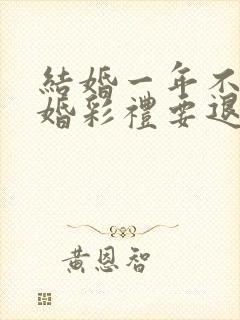 結婚一年不
婚彩禮要退
黃恩智